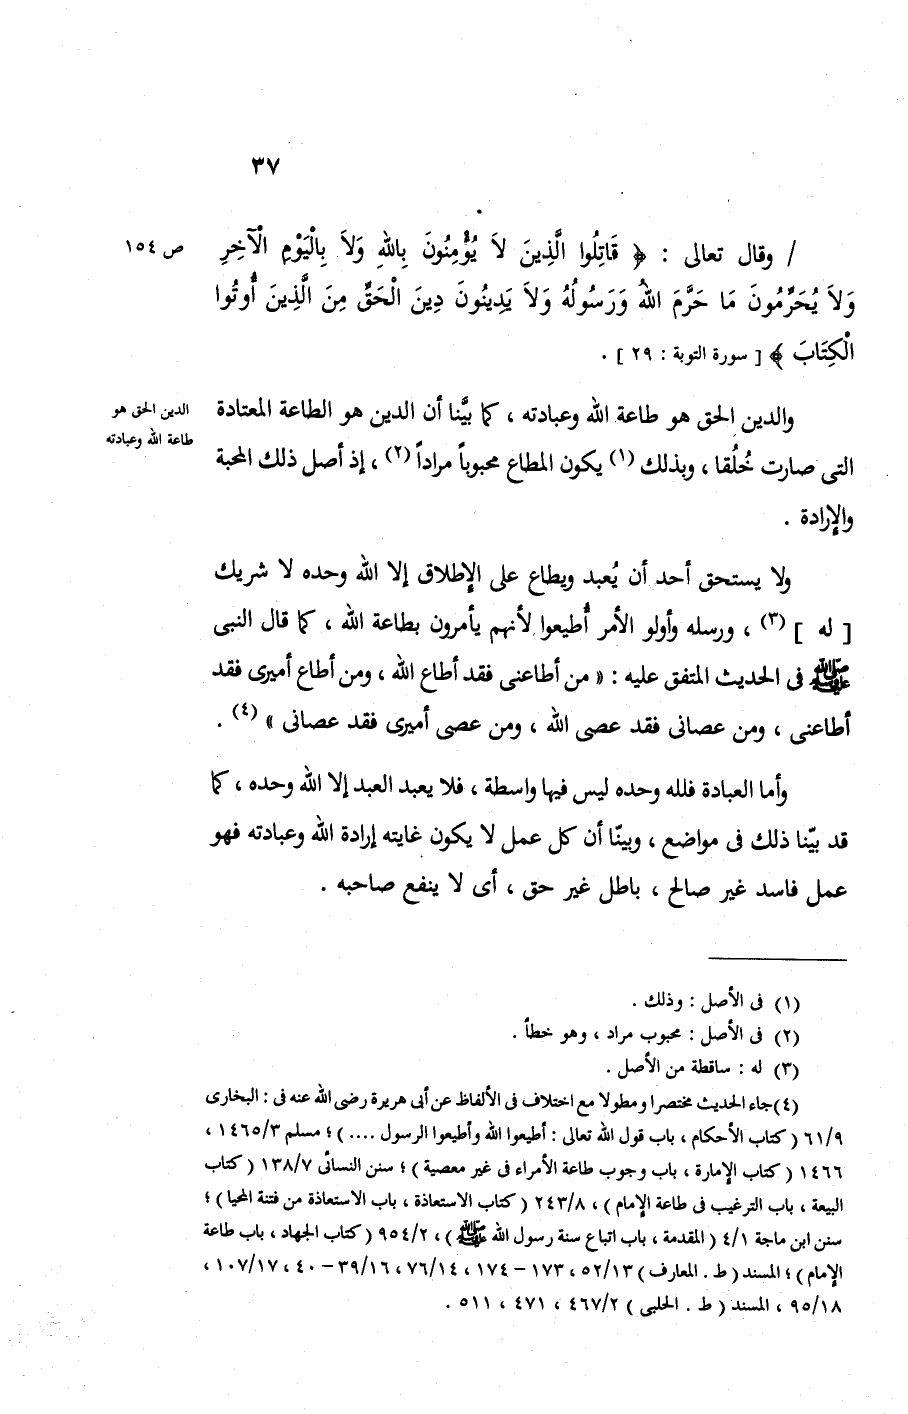 ٣٧
/ وقال تعالى : ﴿ قَاتِلُوا الَّذِينَ لَا يُؤْمِنُونَ بِاللهِ وَلَا بِالْيَوْمِ الْآخِرِ
ص ١٥٤
وَلَا يُحَرِّمُونَ مَا حَرَّمَ اللهُ وَرَسُولُهُ وَلَا يَدِينُونَ دِينَ الْحَقِّ مِنَ الَّذِينَ أُوتُوا
الْكِتَابَ ﴾ [ سورة التوبة : ٢٩ ] .
والدين الحق هو طاعة الله وعبادته ، كما بيَّنا أن الدين هو الطاعة المعتادة
الدين الحق هو
طاعة الله وعبادته
التى صارت خُلُقا ، وبذلك (١) يكون المطاع محبوباً مراداً (٢) ، إذ أصل ذلك المحبة
والإرادة .
ولا يستحق أحد أن يُعبد ويطاع على الإطلاق إلا الله وحده لا شريك
[ له ] (٣) ، ورسله وأولو الأمر أُطيعوا لأنهم يأمرون بطاعة الله ، كما قال النبى
ﷺ فى الحديث المتفق عليه : « من أطاعنى فقد أطاع الله ، ومن أطاع أميرى فقد
أطاعنى ، ومن عصانى فقد عصى الله ، ومن عصى أميرى فقد عصانى » (٤) .
وأما العبادة فلله وحده ليس فيها واسطة ، فلا يعبد العبد إلا الله وحده ، كما
قد بيّنا ذلك فى مواضع ، وبينّا أن كل عمل لا يكون غايته إرادة الله وعبادته فهو
عمل فاسد غير صالح ، باطل غير حق ، أى لا ينفع صاحبه .
(١) فى الأصل : وذلك .
(٢) فى الأصل : محبوب مراد ، وهو خطأ .
(٣) له : ساقطة من الأصل .
(٤) جاء الحديث مختصرا ومطولا مع اختلاف فى الألفاظ عن أبى هريرة رضى الله عنه فى : البخارى
٦١/٩ ( كتاب الأحكام ، باب قول الله تعالى : أطيعوا الله وأطيعوا الرسول .... ) ؛ مسلم ١٤٦٥/٣ ،
١٤٦٦ ( كتاب الإمارة ، باب وجوب طاعة الأمراء فى غير معصية ) ؛ سنن النسائى ١٣٨/٧ ( كتاب
البيعة ، باب الترغيب فى طاعة الإمام ) ، ٢٤٣/٨ ( كتاب الاستعاذة ، باب الاستعاذة من فتنة المحيا ) ؛
سنن ابن ماجة ٤/١ ( المقدمة ، باب اتباع سنة رسول الله ﷺ ) ، ٩٥٤/٢ ( كتاب الجهاد ، باب طاعة
الإمام ) ؛ المسند ( ط . المعارف ) ٥٢/١٣ ، ١٧٣ – ١٧٤ ، ٧٦/١٤ ، ٣٩/١٦ – ٤٠ ، ١٠٧/١٧ ،
٩٥/١٨ ، المسند ( ط . الحلبى ) ٤٦٧/٢ ، ٤٧١ ، ٥١١ .